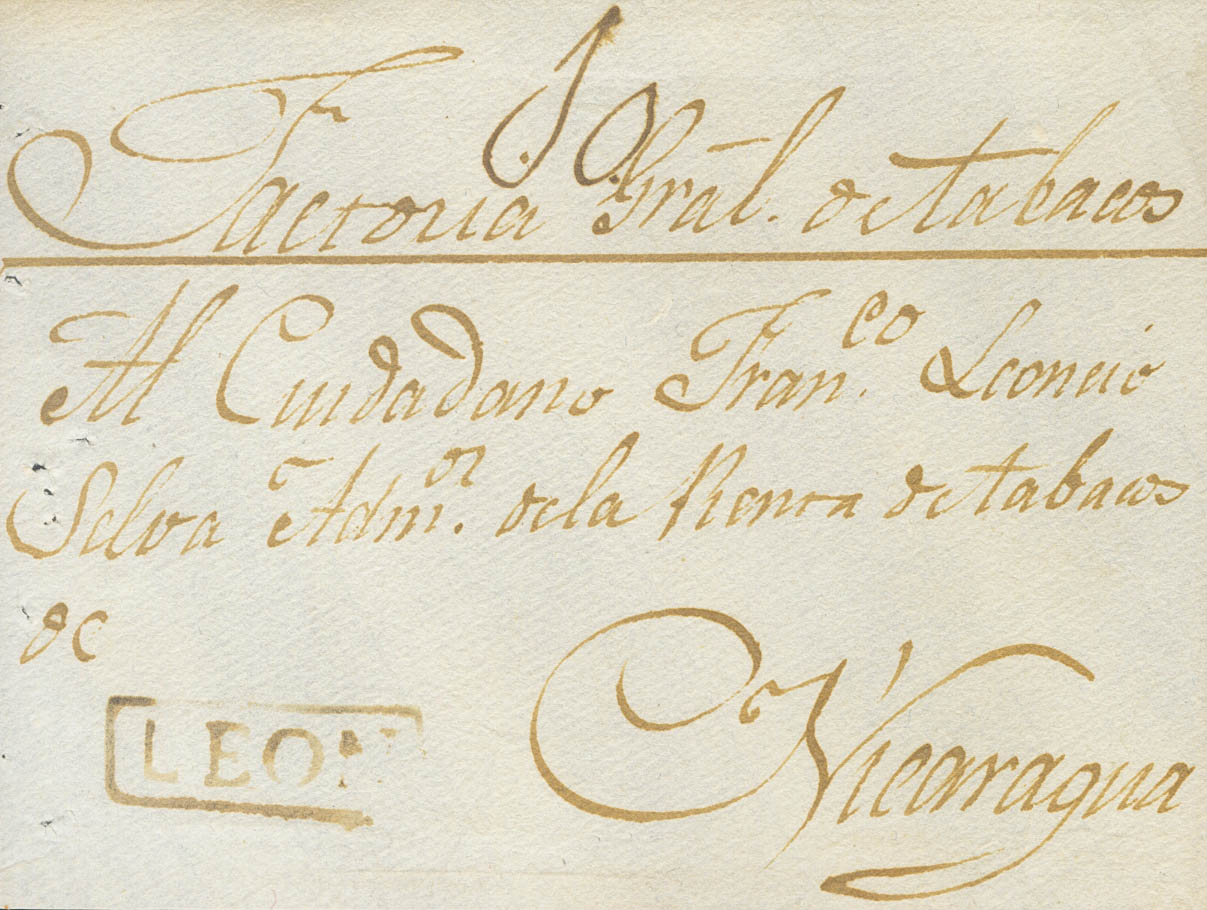 Factoria Gral. de tabacos
Al Ciudadano Fran.co Leoncio
Selva Adm.or de la Renta de tabacos
de
Nicaragua
LEON